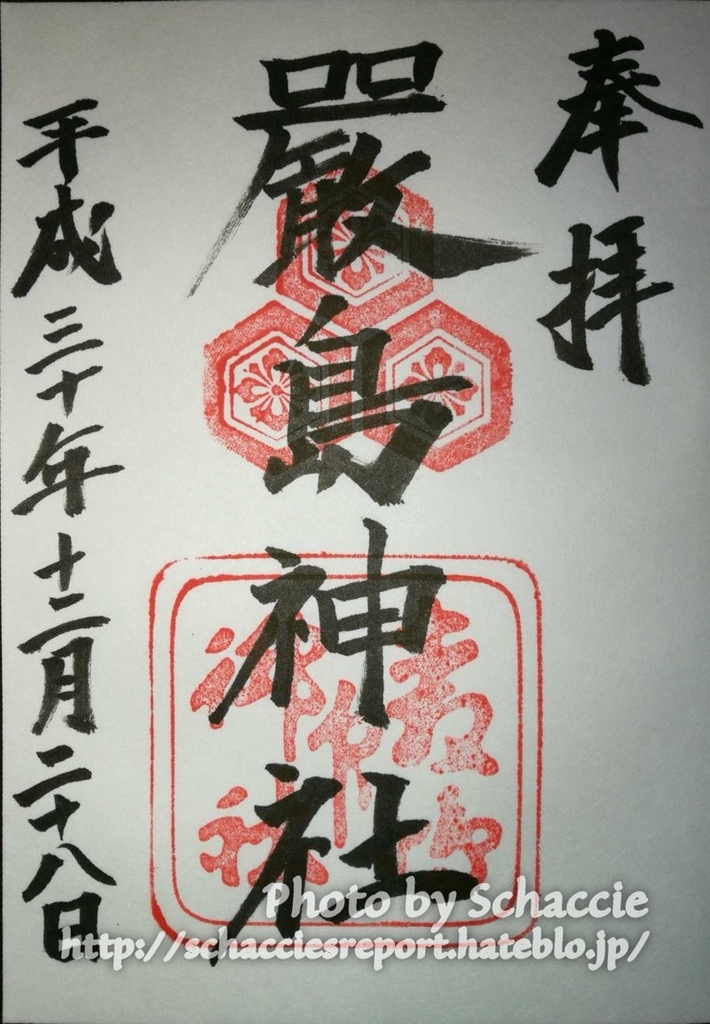 奉拝
嚴島神社
平成三十年十二月二十八日
Photo by Schaccie
http://schacciesreport.hateblo.jp/